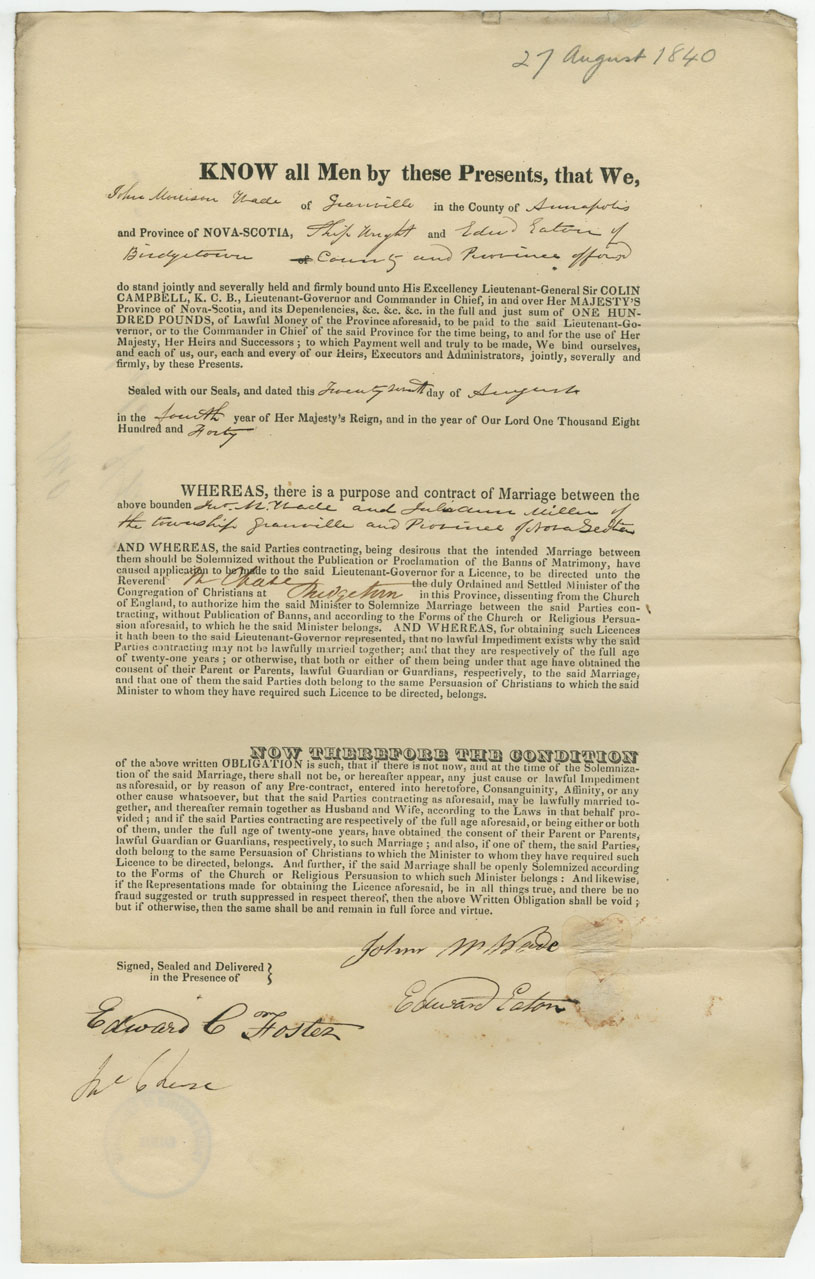 27 August 1840
KNOW all Men by these Presents, that We,
John Morrison Wade of Granville in the County of Annapolis
and Province of NOVA-SCOTIA, Ship Wright and Edwd Eaton of
Bridgetown County and Province afforsd
do stand jointly and severally held and firmly bound unto His Excellency Lieutenant-General Sir COLIN
CAMPBELL, K. C. B., Lieutenant-Governor and Commander in Chief, in and over Her MAJESTY'S
Province of Nova-Scotia, and its Dependencies, &c. &c. &c. in the full and just sum of ONE HUN-
DRED POUNDS, of Lawful Money of the Province aforesaid, to be paid to the said Lieutenant-Go-
vernor, or to the Commander in Chief of the said Province for the time being, to and for the use of Her
Majesty, Her Heirs and Successors ; to which Payment well and truly to be made, We bind ourselves,
and each of us, our, each and every of our Heirs, Executors and Administrators, jointly, severally and
firmly, by these Presents.
Sealed with our Seals, and dated this day of August
in the fourth year of Her Majesty's Reign, and in the year of Our Lord One Thousand Eight
Hundred and Forty
WHEREAS, there is a purpose and contract of Marriage between the
above bounden Jno. M. Wade and Miller of
the township Granville and Province of Nova Scotia
AND WHEREAS, the said Parties contracting, being desirous that the intended Marriage between
them should be Solemnized without the Publication or Proclamation of the Banns of Matrimony, have
caused application to be made to the said Lieutenant-Governor for a Licence, to be directed unto the
Reverend Chase the duly Ordained and Settled Minister of the
Congregation of Christians at Bridgetown in this Province, dissenting from the Church
of England, to authorize him the said Minister to Solemnize Marriage between the said Parties con-
tracting, without Publication of Banns, and according to the Forms of the Church or Religious Persua-
sion aforesaid, to which he the said Minister belongs. AND WHEREAS, for obtaining such Licences
it hath been to the said Lieutenant-Governor represented, that no lawful Impediment exists why the said
Parties contracting may not be lawfully married together; and that they are respectively of the full age
of twenty-one years ; or otherwise, that both or either of them being under that age have obtained the
consent of their Parent or Parents, lawful Guardian or Guardians, respectively, to the said Marriage,
and that one of them the said Parties doth belong to the same Persuasion of Christians to which the said
Minister to whom they have required such Licence to be directed, belongs.
NOW THEREFORE THE CONDITION
of the above written OBLIGATION is such, that if there is not now, and at the time of the Solemniza-
tion of the said Marriage, there shall not be, or hereafter appear, any just cause or lawful Impediment
as aforesaid, or by reason of any Pre-contract, entered into heretofore, Consanguinity, Affinity, or any
other cause whatsoever, but that the said Parties contracting as aforesaid, may be lawfully married to-
gether, and thereafter remain together as Husband and Wife, according to the Laws in that behalf pro-
vided ; and if the said Parties contracting are respectively of the full age aforesaid, or being either or both
of them, under the full age of twenty-one years, have obtained the consent of their Parent or Parents,
lawful Guardian or Guardians, respectively, to such Marriage ; and also, if one of them, the said Parties,
doth belong to the same Persuasion of Christians to which the Minister to whom they have required such
Licence to be directed, belongs. And further, if the said Marriage shall be openly Solemnized according
to the Forms of the Church or Religious Persuasion to which such Minister belongs : And likewise,
if the Representations made for obtaining the Licence aforesaid, be in all things true, and there be no
fraud suggested or truth suppressed in respect thereof, then the above Written Obligation shall be void ;
but if otherwise, then the same shall be and remain in full force and virtue.
John M Wade
Signed, Sealed and Delivered
in the Presence of
Edward Eaton
Edward C Foster
Chase